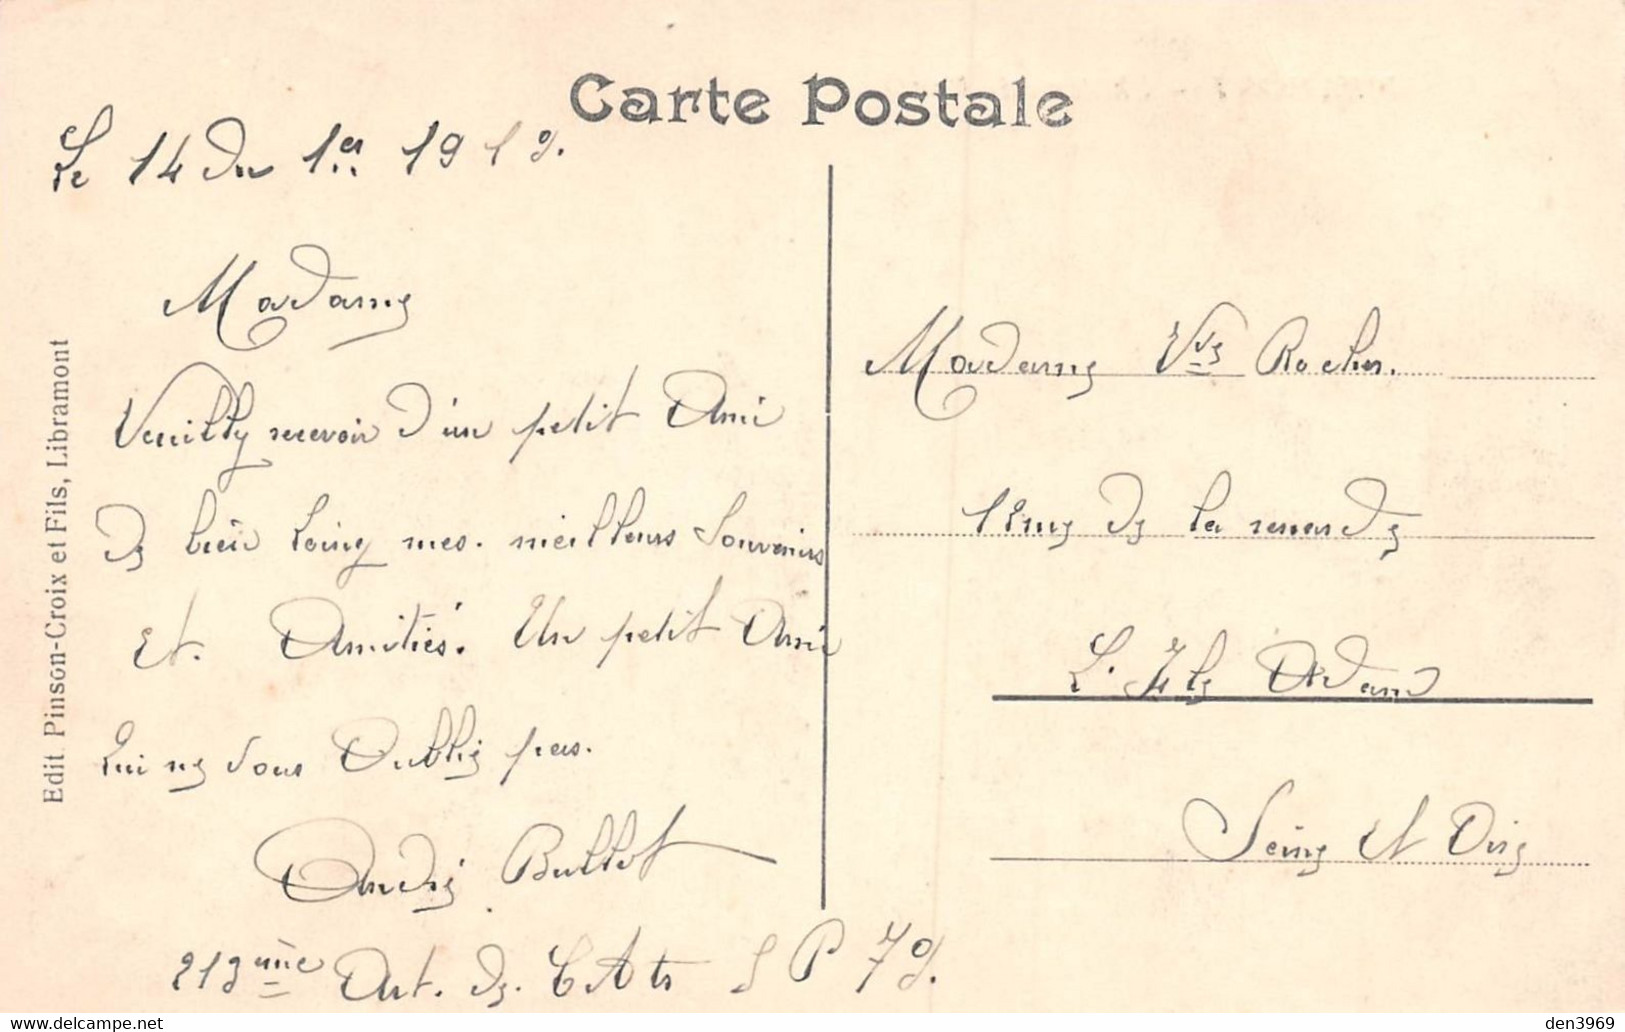 Carte Postale
Le 14 du 1er 1919.
Madame
Veuilly recevoir d'un petit Ami
de bien loing mes. meilleurs Souvenirs
et. Amitiés. Un petit Ami
qui ne vous Oublie pas.
André Bullot
219ème Art. de. C A tr S P 79.
Madame Vve Rocher.
de la
L. Ile Adam
Seine et Oise
Edit. Pinson-Croix et Fils, Libramont
den3969